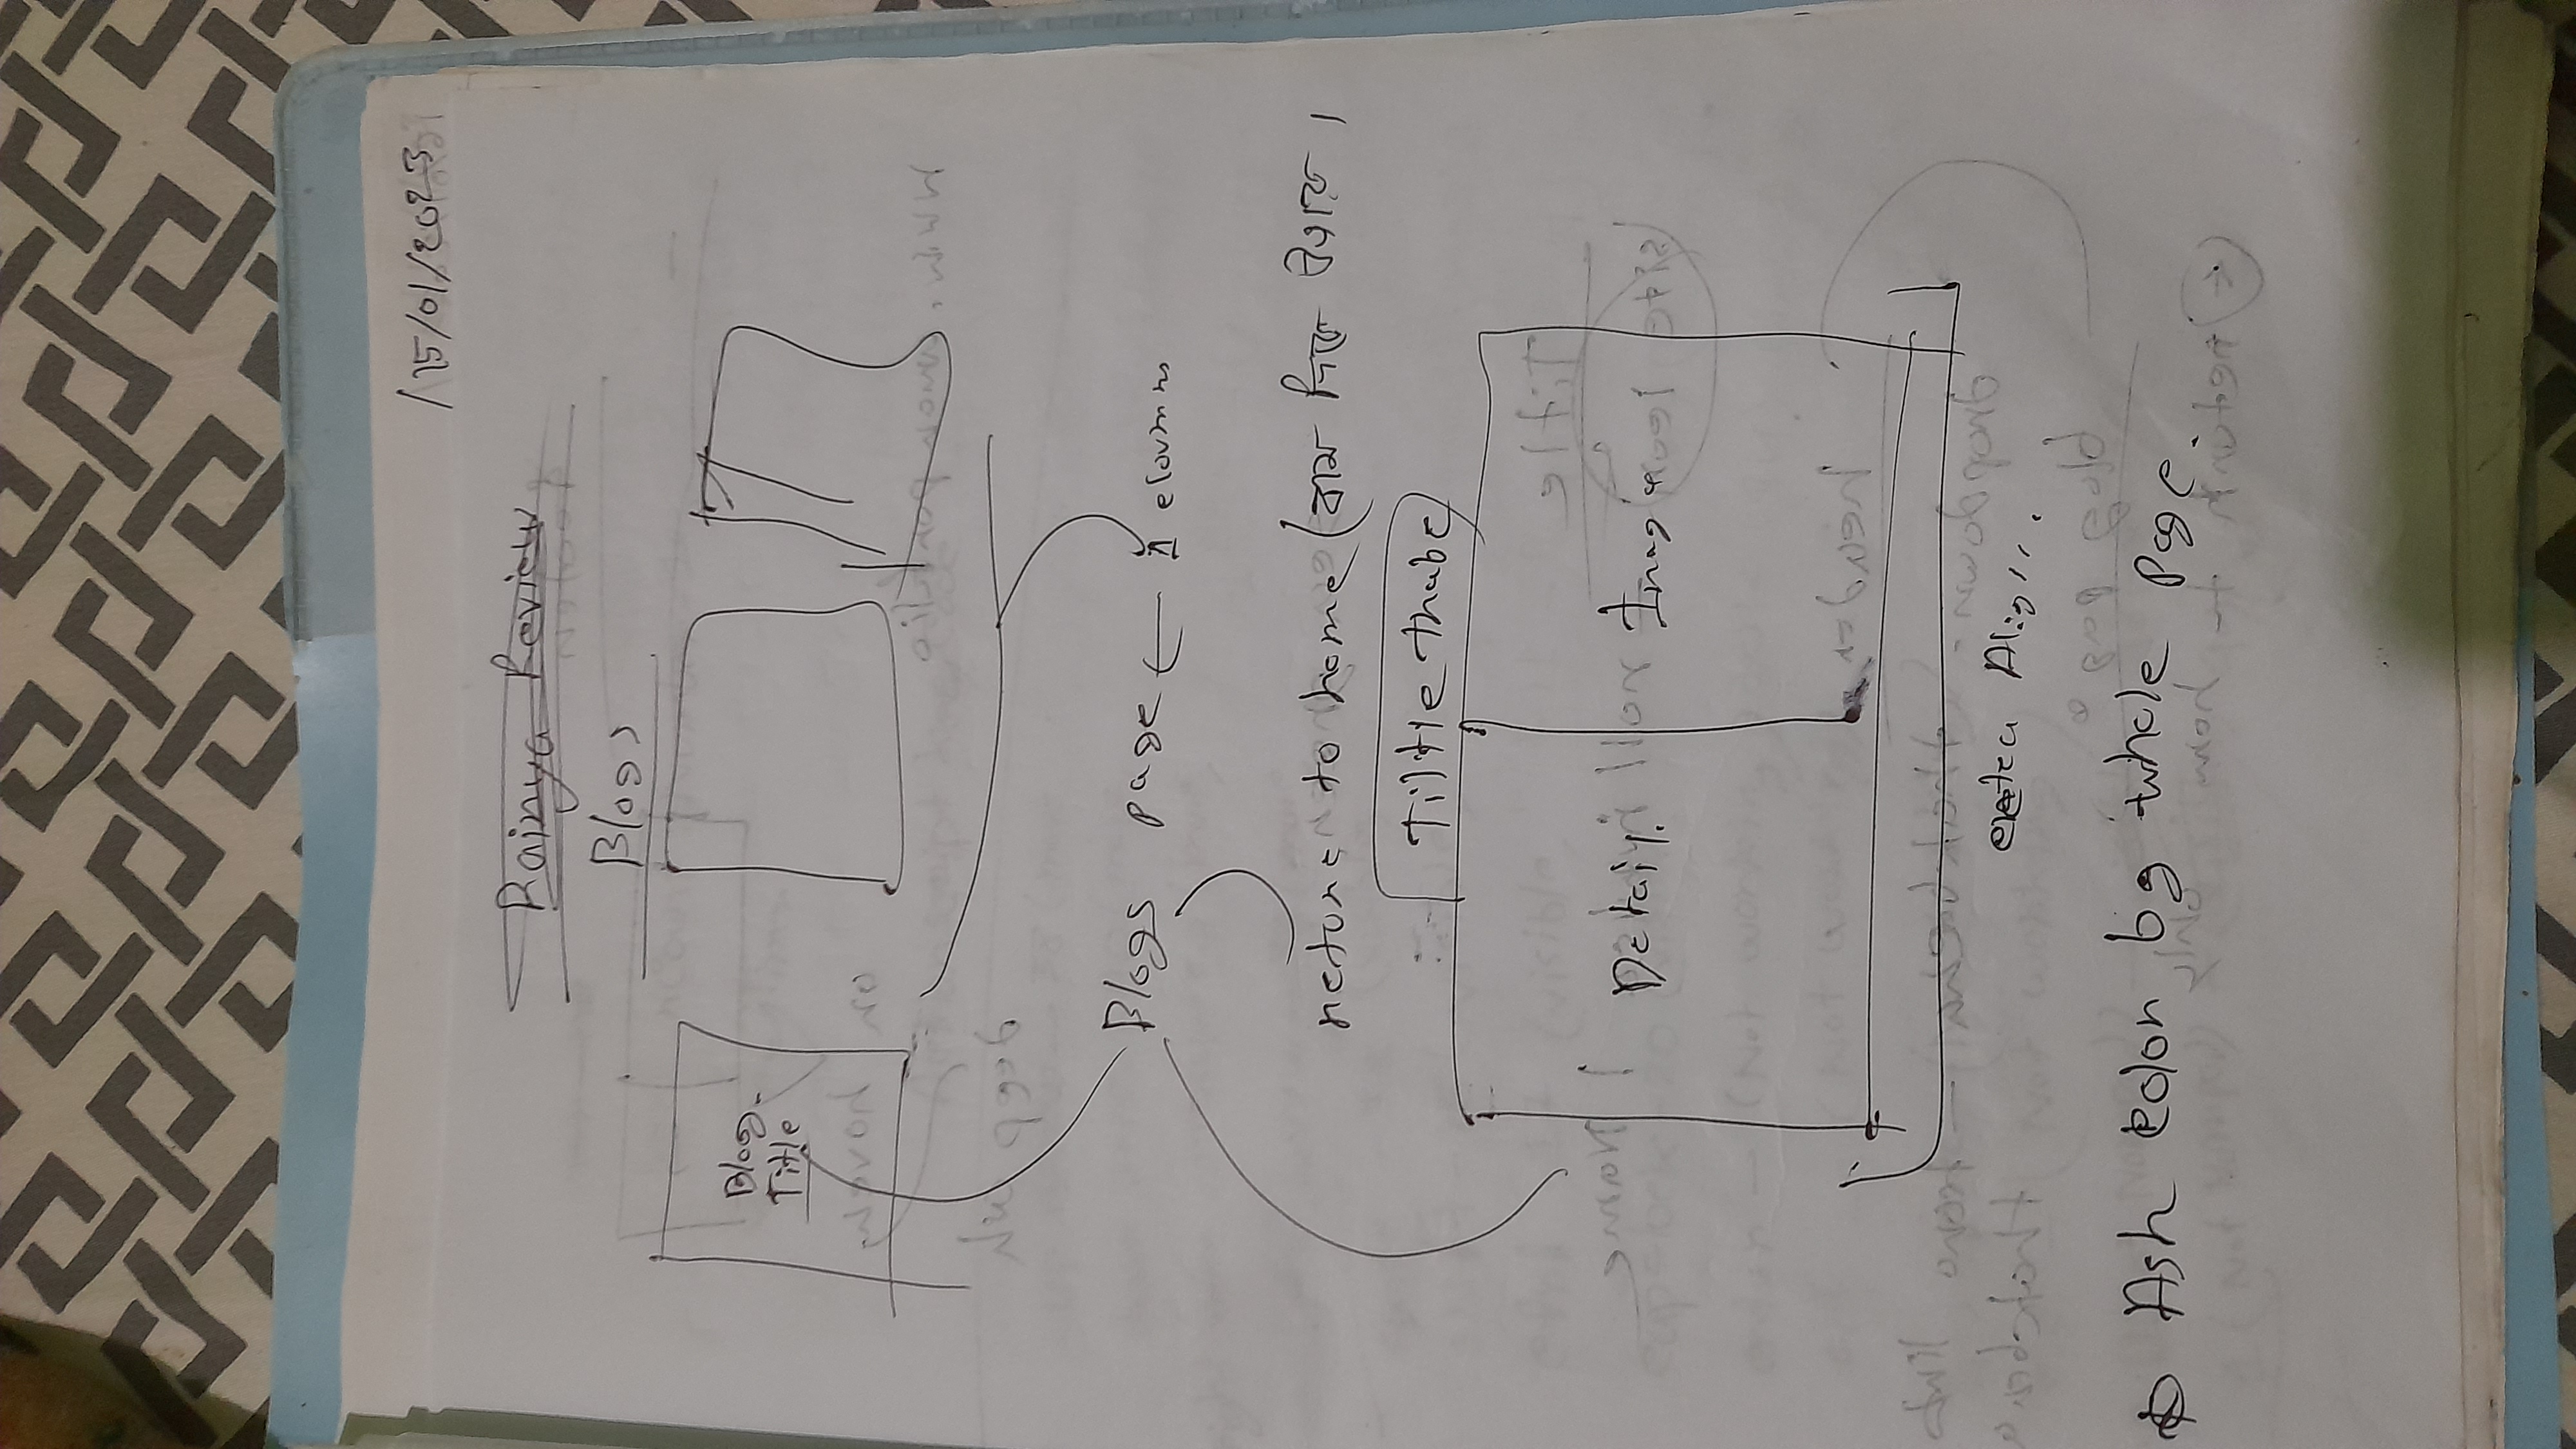 15/01/2023
Rainya Review
Blogs
Blog
Title
Blogs page ← 1 cloumns
return to home (বাম দিকে
Tiltle thabe
Detail. Image
extra Align..
Ash color bg whole page.